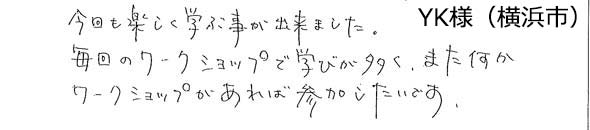 今回も楽しく学ぶ事が出来ました。 YK様（横浜市）
毎回のワークショップで学びが多く、また何か
ワークショップがあれば参加したいです。